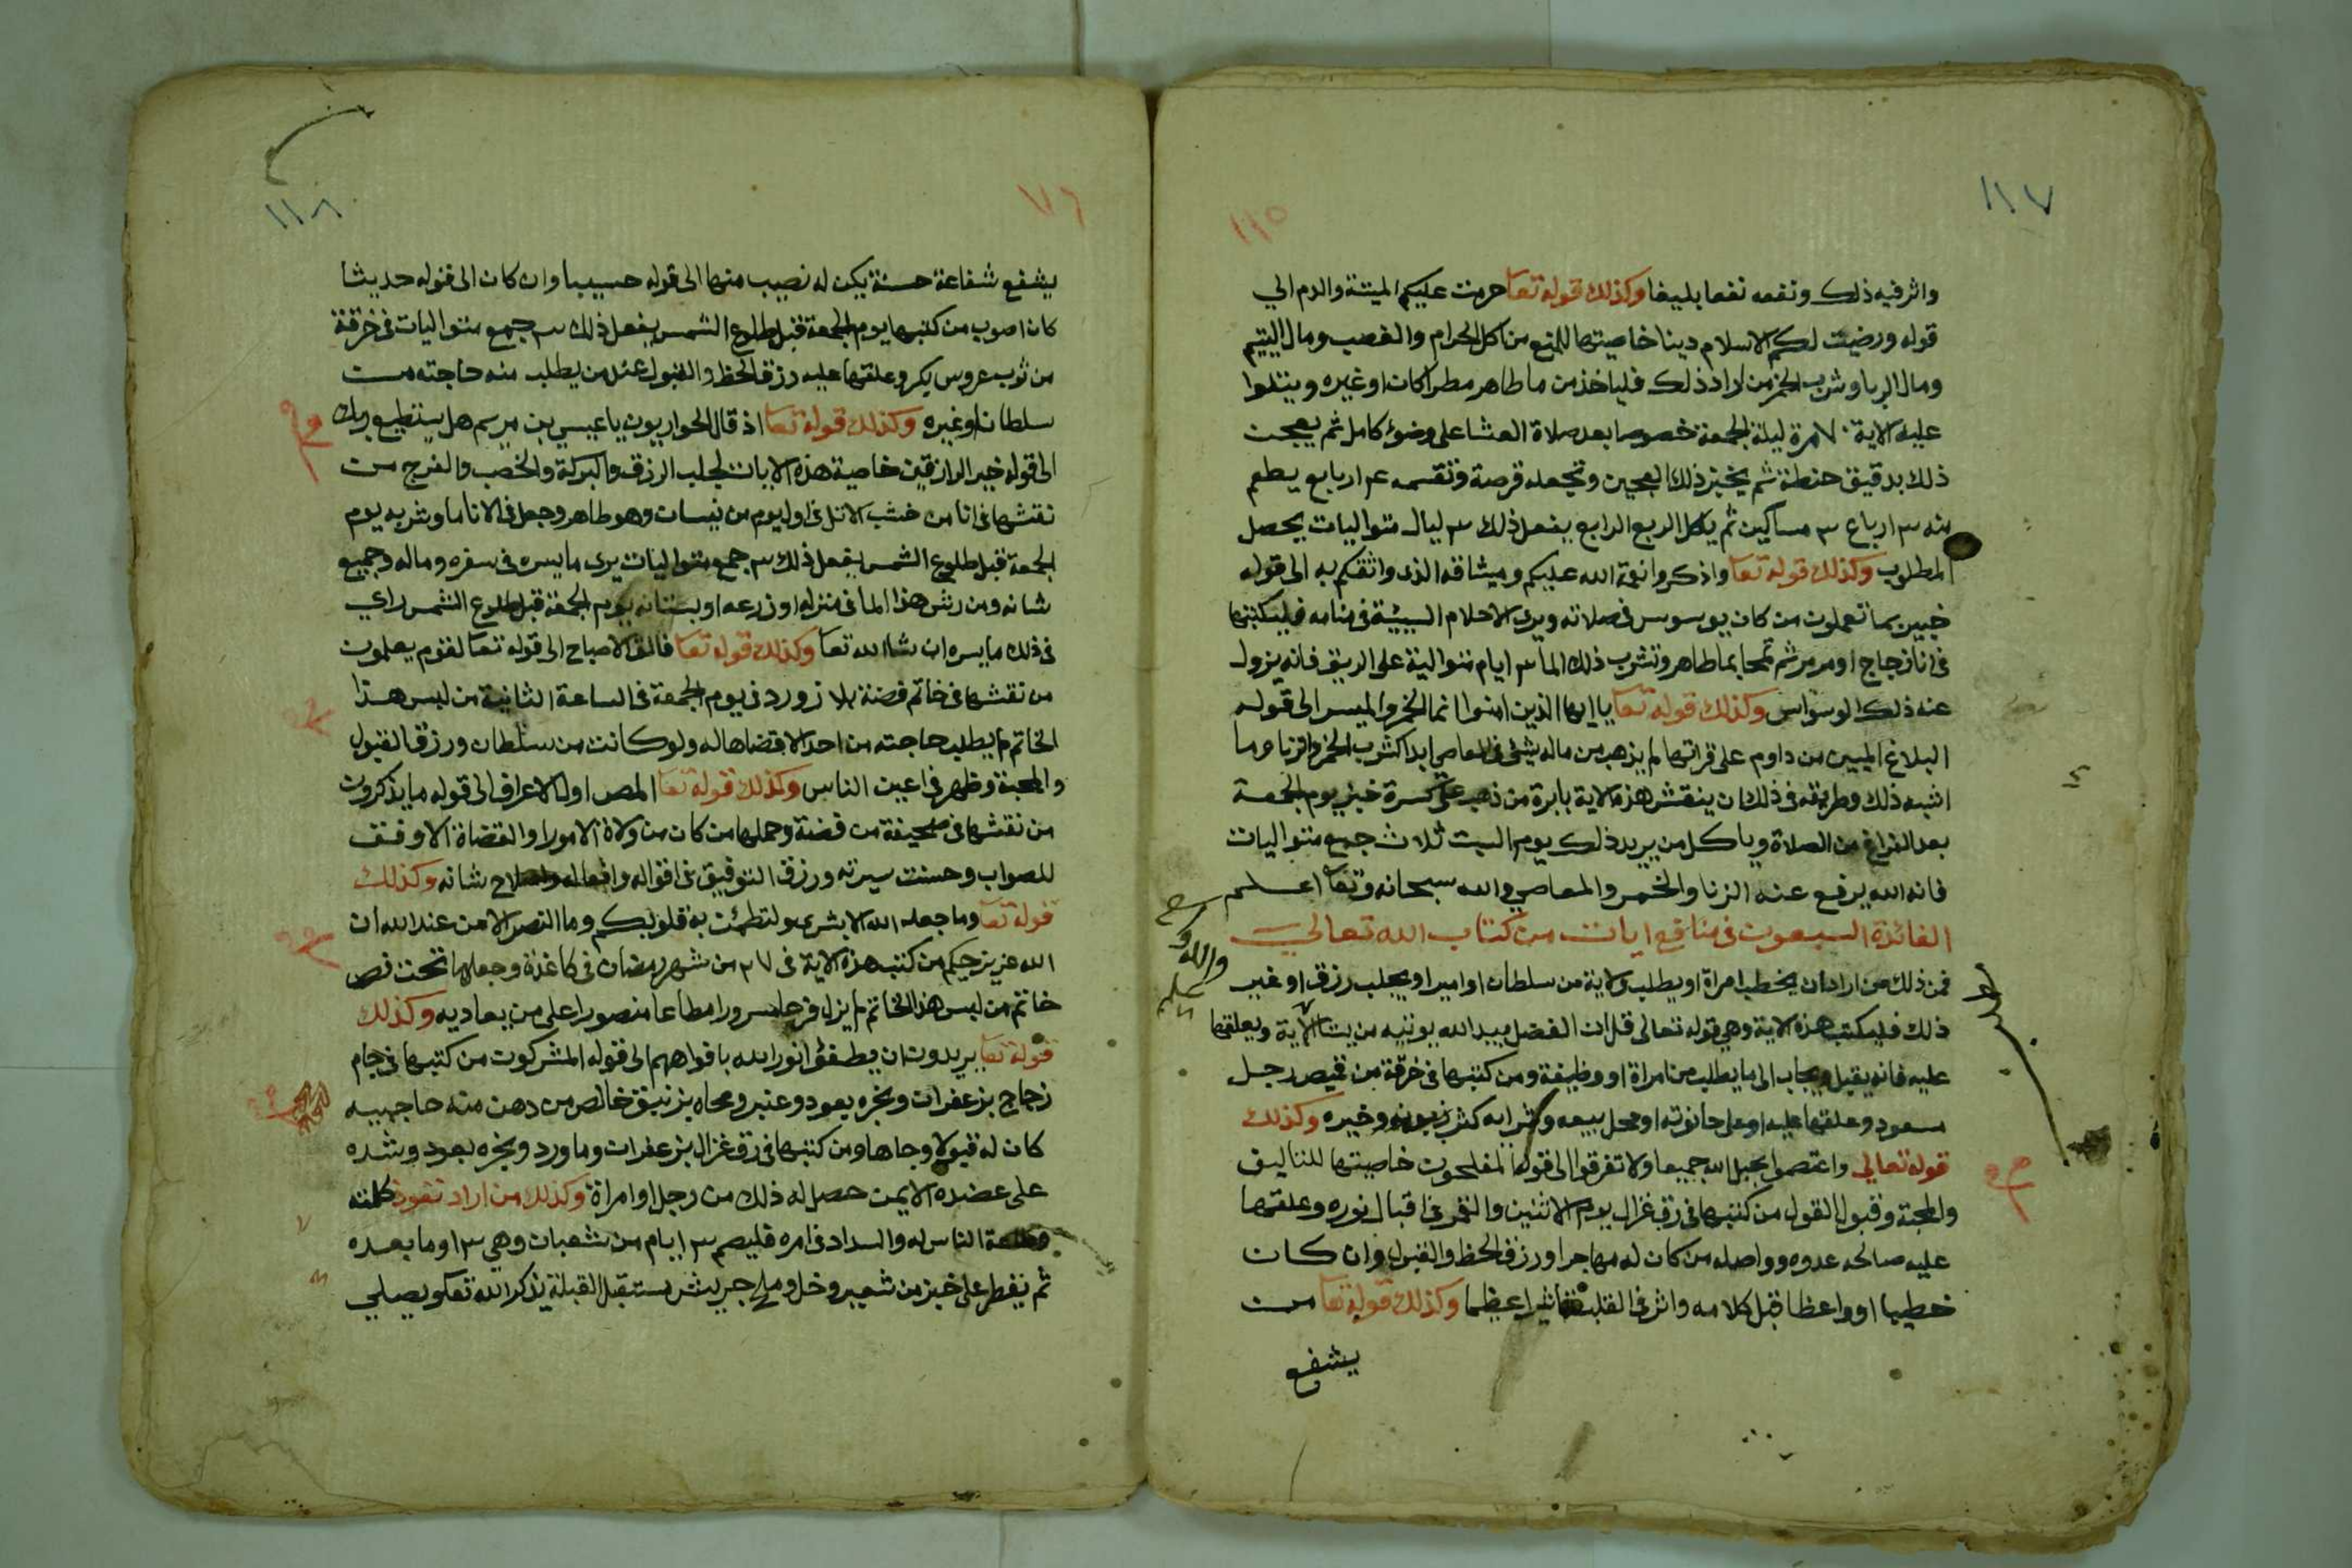 ١١٧
١١٥
واثر فيه ذلك ونفعه نفعا بليغا وكذلك قوله تعا حرمت عليكم الميتة والدم الي
قوله ورضيت لكم الاسلام دينا خاصيتها للمنع من اكل الحرام والغصب ومال اليتيم
ومال الربا وشرب الخمر من اراد ذلك فلياخذ من ما طاهر مطرا كان او غيره ويتلوا
عليه الاية ٧٠ مرة ليلة الجمعة خصوصا بعد صلاة العشا على وضوء كامل ثم يعجن
ذلك بدقيق حنطة ثم يخبز ذلك العجين وتجعله قرصة وتقسمه ٤ ارباع يطعم
منه ٣ ارباع ٣ مساكين ثم ياكل الربع الرابع يفعل ذلك ٣ ليال متواليات يحصل
المطلوب وكذلك قوله تعا واذكروا نعمة الله عليكم وميثاقه الذى واثقكم به الى قوله
خبير بما تعملون من كان يوسوس فى صلاته ويرى الاحلام السيئة فى منامه فليكتبها
فى انا زجاج او مرمر ثم تمحا بما طاهر وتشرب ذلك الما ٣ ايام متوالية على الريق فانه يزول
عنه ذلك الوسواس وكذلك قوله تعا يا ايها الذين امنوا انما الخمر والميسر الى قوله
البلاغ المبين من داوم على قراتها لم يذهب من ماله شئ فى المعاصي ابدا كشرب الخمر والزنا وما
اشبه ذلك وطريقته فى ذلك ان ينقش هذه الاية بابرة من ذهب على كسرة خبز يوم الجمعة
بعد الفراغ من الصلاة وياكل من يريد ذلك يوم السبت ثلاث جمع متواليات
فانه الله يرفع عنه الزنا والخمر والمعاصي والله سبحانه وتعا اعلم
الفائدة السبعون فى منافع ايات من كتاب الله تعالى
فمن ذلك من اراد ان يخطب امراة او يطلب ولاية من سلطان او امير او يجلب رزق او غير
ذلك فليكتب هذه الاية وهى قوله تعالى قل ان الفضل بيد الله يوتيه من يشا الاية ويعلقها
عليه فانه يقبل ويجاب الى ما يطلب من امراة او وظيفة ومن كتبها فى خرقة من قميص رجل
مسعود وعلقها عليه او على حانوته او محل بيعه وشرايه كثر زبونه وخيره وكذلك
قوله تعالى واعتصموا بحبل الله جميعا ولا تفرقوا الى قوله المفلحون خاصيتها للتاليف
والمحبة وقبول القول من كتبها فى رق غزال يوم الاثنين والقمر فى اقبال نوره وعلقها
عليه صالحه عدوه وواصله من كان له مهاجرا ورزق الحظ والقبول وان كان
خطيبا او واعظا قبل كلامه واثر فى القلب تاثيرا عظيما وكذلك قوله تعا من
يشفع
والله
١١٨
٧٦
يشفع شفاعة حسنة يكن له نصيب منها الى قوله حسيبا وان كان الى قوله حديثا
كان اصوب من كتبها يوم الجمعة قبل طلوع الشمس يفعل ذلك ٣ جمع متواليات فى خرقة
من ثوب عروس بكر وعلقها عليه رزق الحظ والقبول عند من يطلب منه حاجته من
سلطان او غيره وكذلك قوله تعا اذ قال الحواريون يا عيسى بن مريم هل يستطيع ربك
الى قوله خير الرازقين خاصية هذه الايات لجلب الرزق والبركة والخصب والفرج من
نقشها فى انا من خشب الاثل فى اول يوم من نيسان وهو طاهر وجعل فى الانا ما وشربه يوم
الجمعة قبل طلوع الشمس يفعل ذلك ٣ جمع متواليات يرى ما يسره فى سفره وماله وجميع
شانه ومن رش هذا الما فى منزله او زرعه او بستانه يوم الجمعة قبل طلوع الشمس راي
فى ذلك ما يسره ان شا الله تعا وكذلك قوله تعا فالق الاصباح الى قوله تعا لقوم يعلمون
من نقشها فى خاتم فضة بلا زورد فى يوم الجمعة فى الساعة الثانية من لبس هذا
الخاتم لم يطلب حاجته من احد الا قضاها له ولو كانت من سلطان ورزق القبول
والمحبة وظهر فى اعين الناس وكذلك قوله تعا المص اول الاعراف الى قوله ما يذكرون
من نقشها فى صحيفة من فضة وحملها من كان من ولاة الامور او القضاة الا وفق
للصواب وحسنت سيرته ورزق التوفيق فى اقواله وافعاله واصلاح شانه وكذلك
قوله تعا وما جعله الله الا بشرى ولتطمئن به قلوبكم وما النصر الا من عند الله ان
الله عزيز حكيم من كتب هذه الاية فى ٢٧ من شهر رمضان فى كاغدة وجعلها تحت فص
خاتم من لبس هذا الخاتم لم يزل فرحا مسرورا مطاعا منصورا على من يعاديه وكذلك
قوله تعا يريدون ان يطفؤا نور الله بافواههم الى قوله المشركون من كتبها فى جام
زجاج بزعفران وبخره بعود وعنبر ومحاه بزنبق خالص من دهن منه حاجبيه
كان له قبولا وجاها ومن كتبها فى رق غزال بزعفران وماورد وبخره بعود وشده
على عضده الايمن حصل له ذلك من رجل او امراة وكذلك من اراد نفوذ كلمته
وطاعة الناس له والسداد فى امره فليصم ٣ ايام من شعبان وهى ١٣ وما بعده
ثم يفطر على خبز من شعير وخل وملح جريش مستقبل القبلة يذكر الله تعا ويصلي